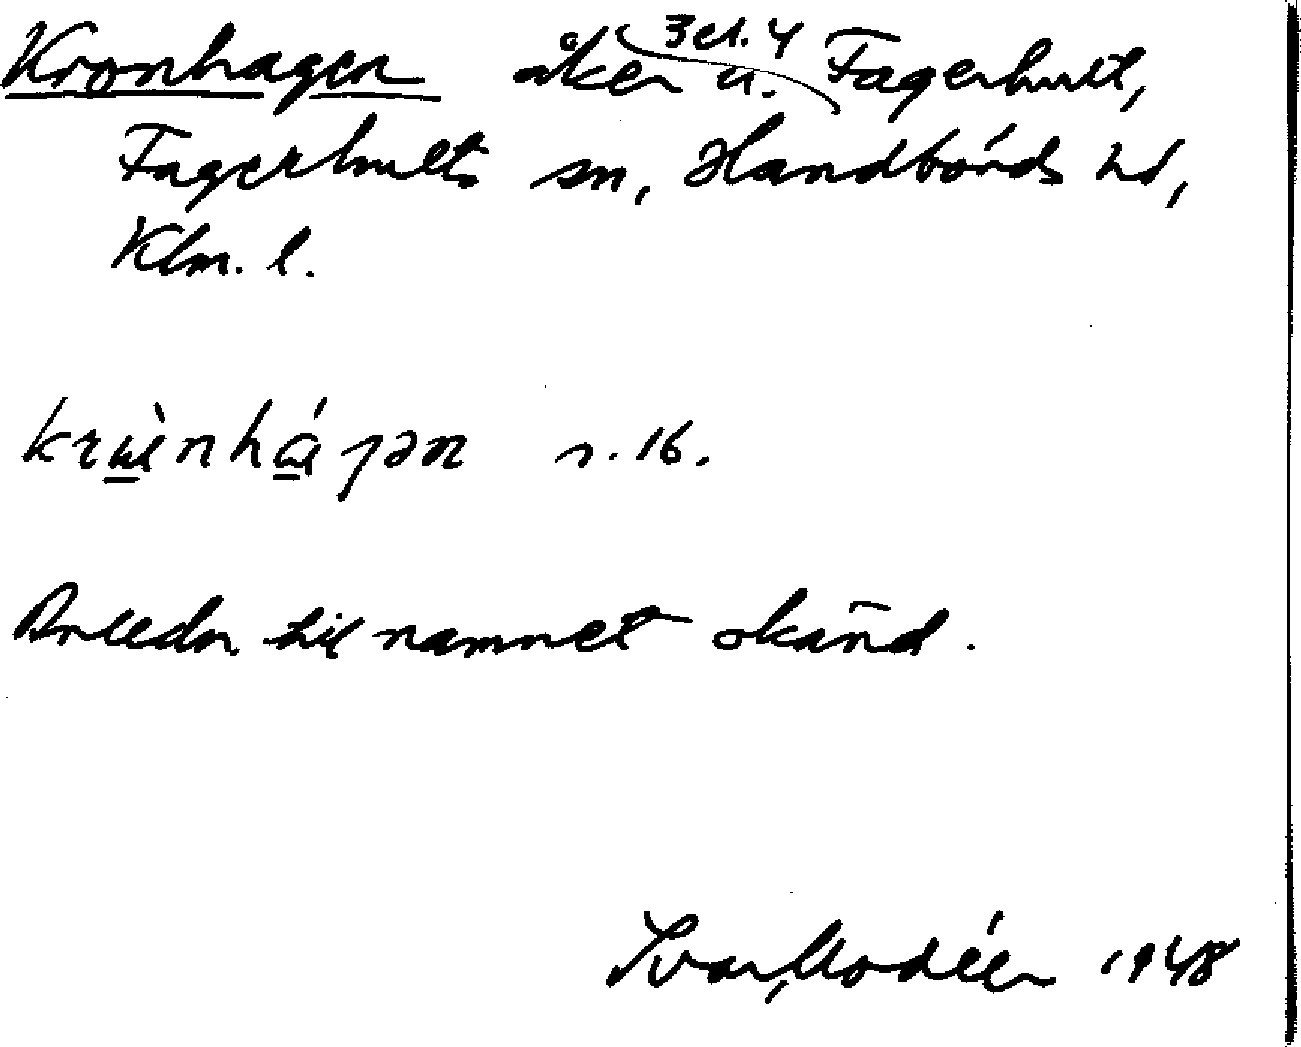 Kronhagen åker u. 3el.4 Fagerhult,
Fagerhults sn, Handbörds hd,
Klm. l.
krɯ̀nhɑ́ɟən r. 16.
Anledn. till namnet okänd.
Ivar Modéer 1948